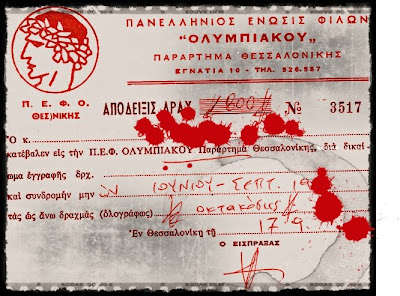 ΠΑΝΕΛΛΗΝΙΟΣ ΕΝΩΣΙΣ ΦΙΛΩΝ
"ΟΛΥΜΠΙΑΚΟΥ"
ΠΑΡΑΡΤΗΜΑ ΘΕΣΣΑΛΟΝΙΚΗΣ
ΕΓΝΑΤΙΑ 10 - ΤΗΛ. 526.587
Π. Ε. Φ. Ο.
ΘΕΣ)ΝΙΚΗΣ
ΑΠΟΔΕΙΞΙΣ ΔΡΑΧ. 800 № 3517
Ὁ κ.
κατέβαλεν εἰς τὴν Π.Ε.Φ. ΟΛΥΜΠΙΑΚΟΥ Παράρτημα Θεσσαλονίκης, διὰ δικαί-
ωμα ἐγγραφῆς δρχ.
καὶ συνδρομὴν μην ών ΙΟΥΝΙΟΥ - ΣΕΠΤ. 19
τὰς ὡς ἄνω δραχμὰς (ὁλογράφως) οκτακόσιες
Ἐν Θεσσαλονίκῃ τῇ 17. 9.
Ο ΕΙΣΠΡΑΞΑΣ